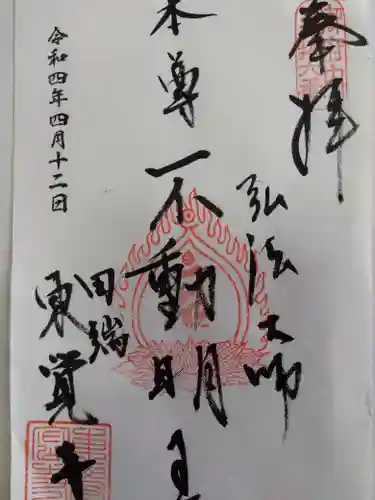 奉拝
弘法大師
本尊不動明王
田端
東覚寺
令和四年四月十二日